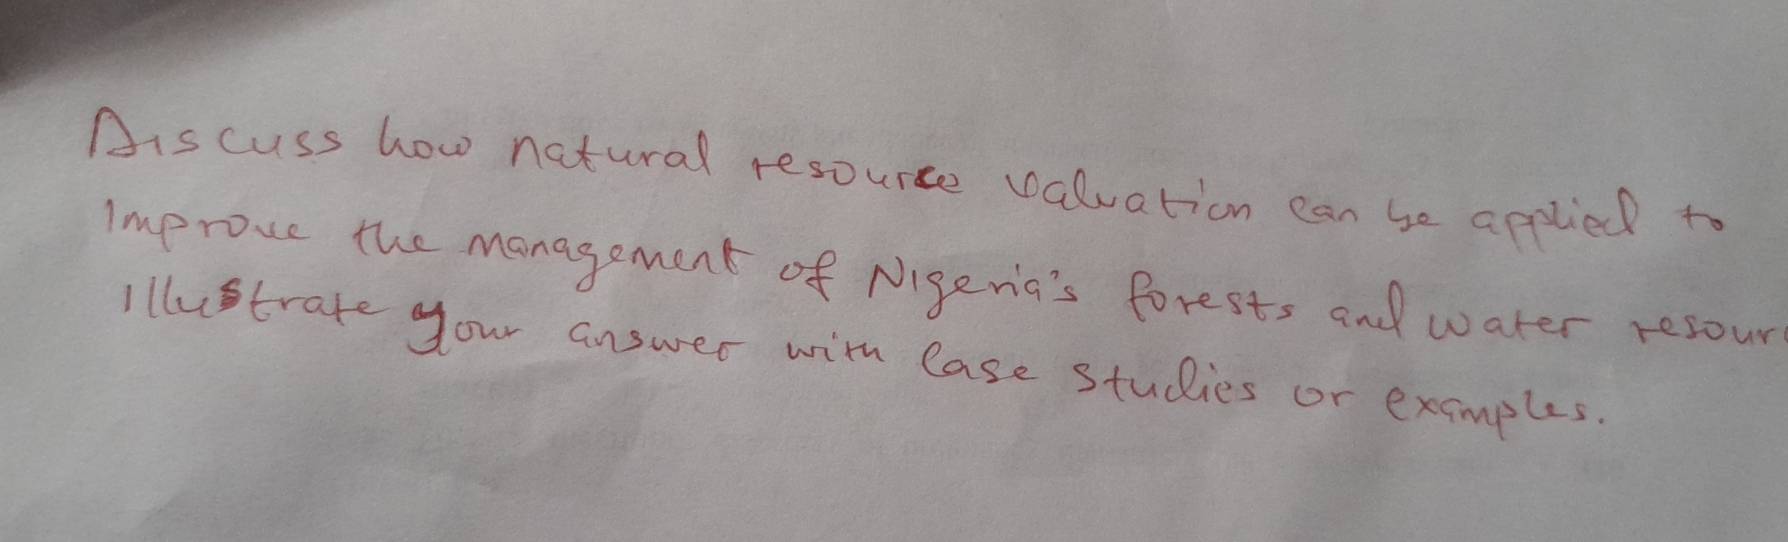 Discuss how natural resource valuation can be applied to
improve the management of Nigeria's forests and water resour
illustrate your answer with case studies or examples.